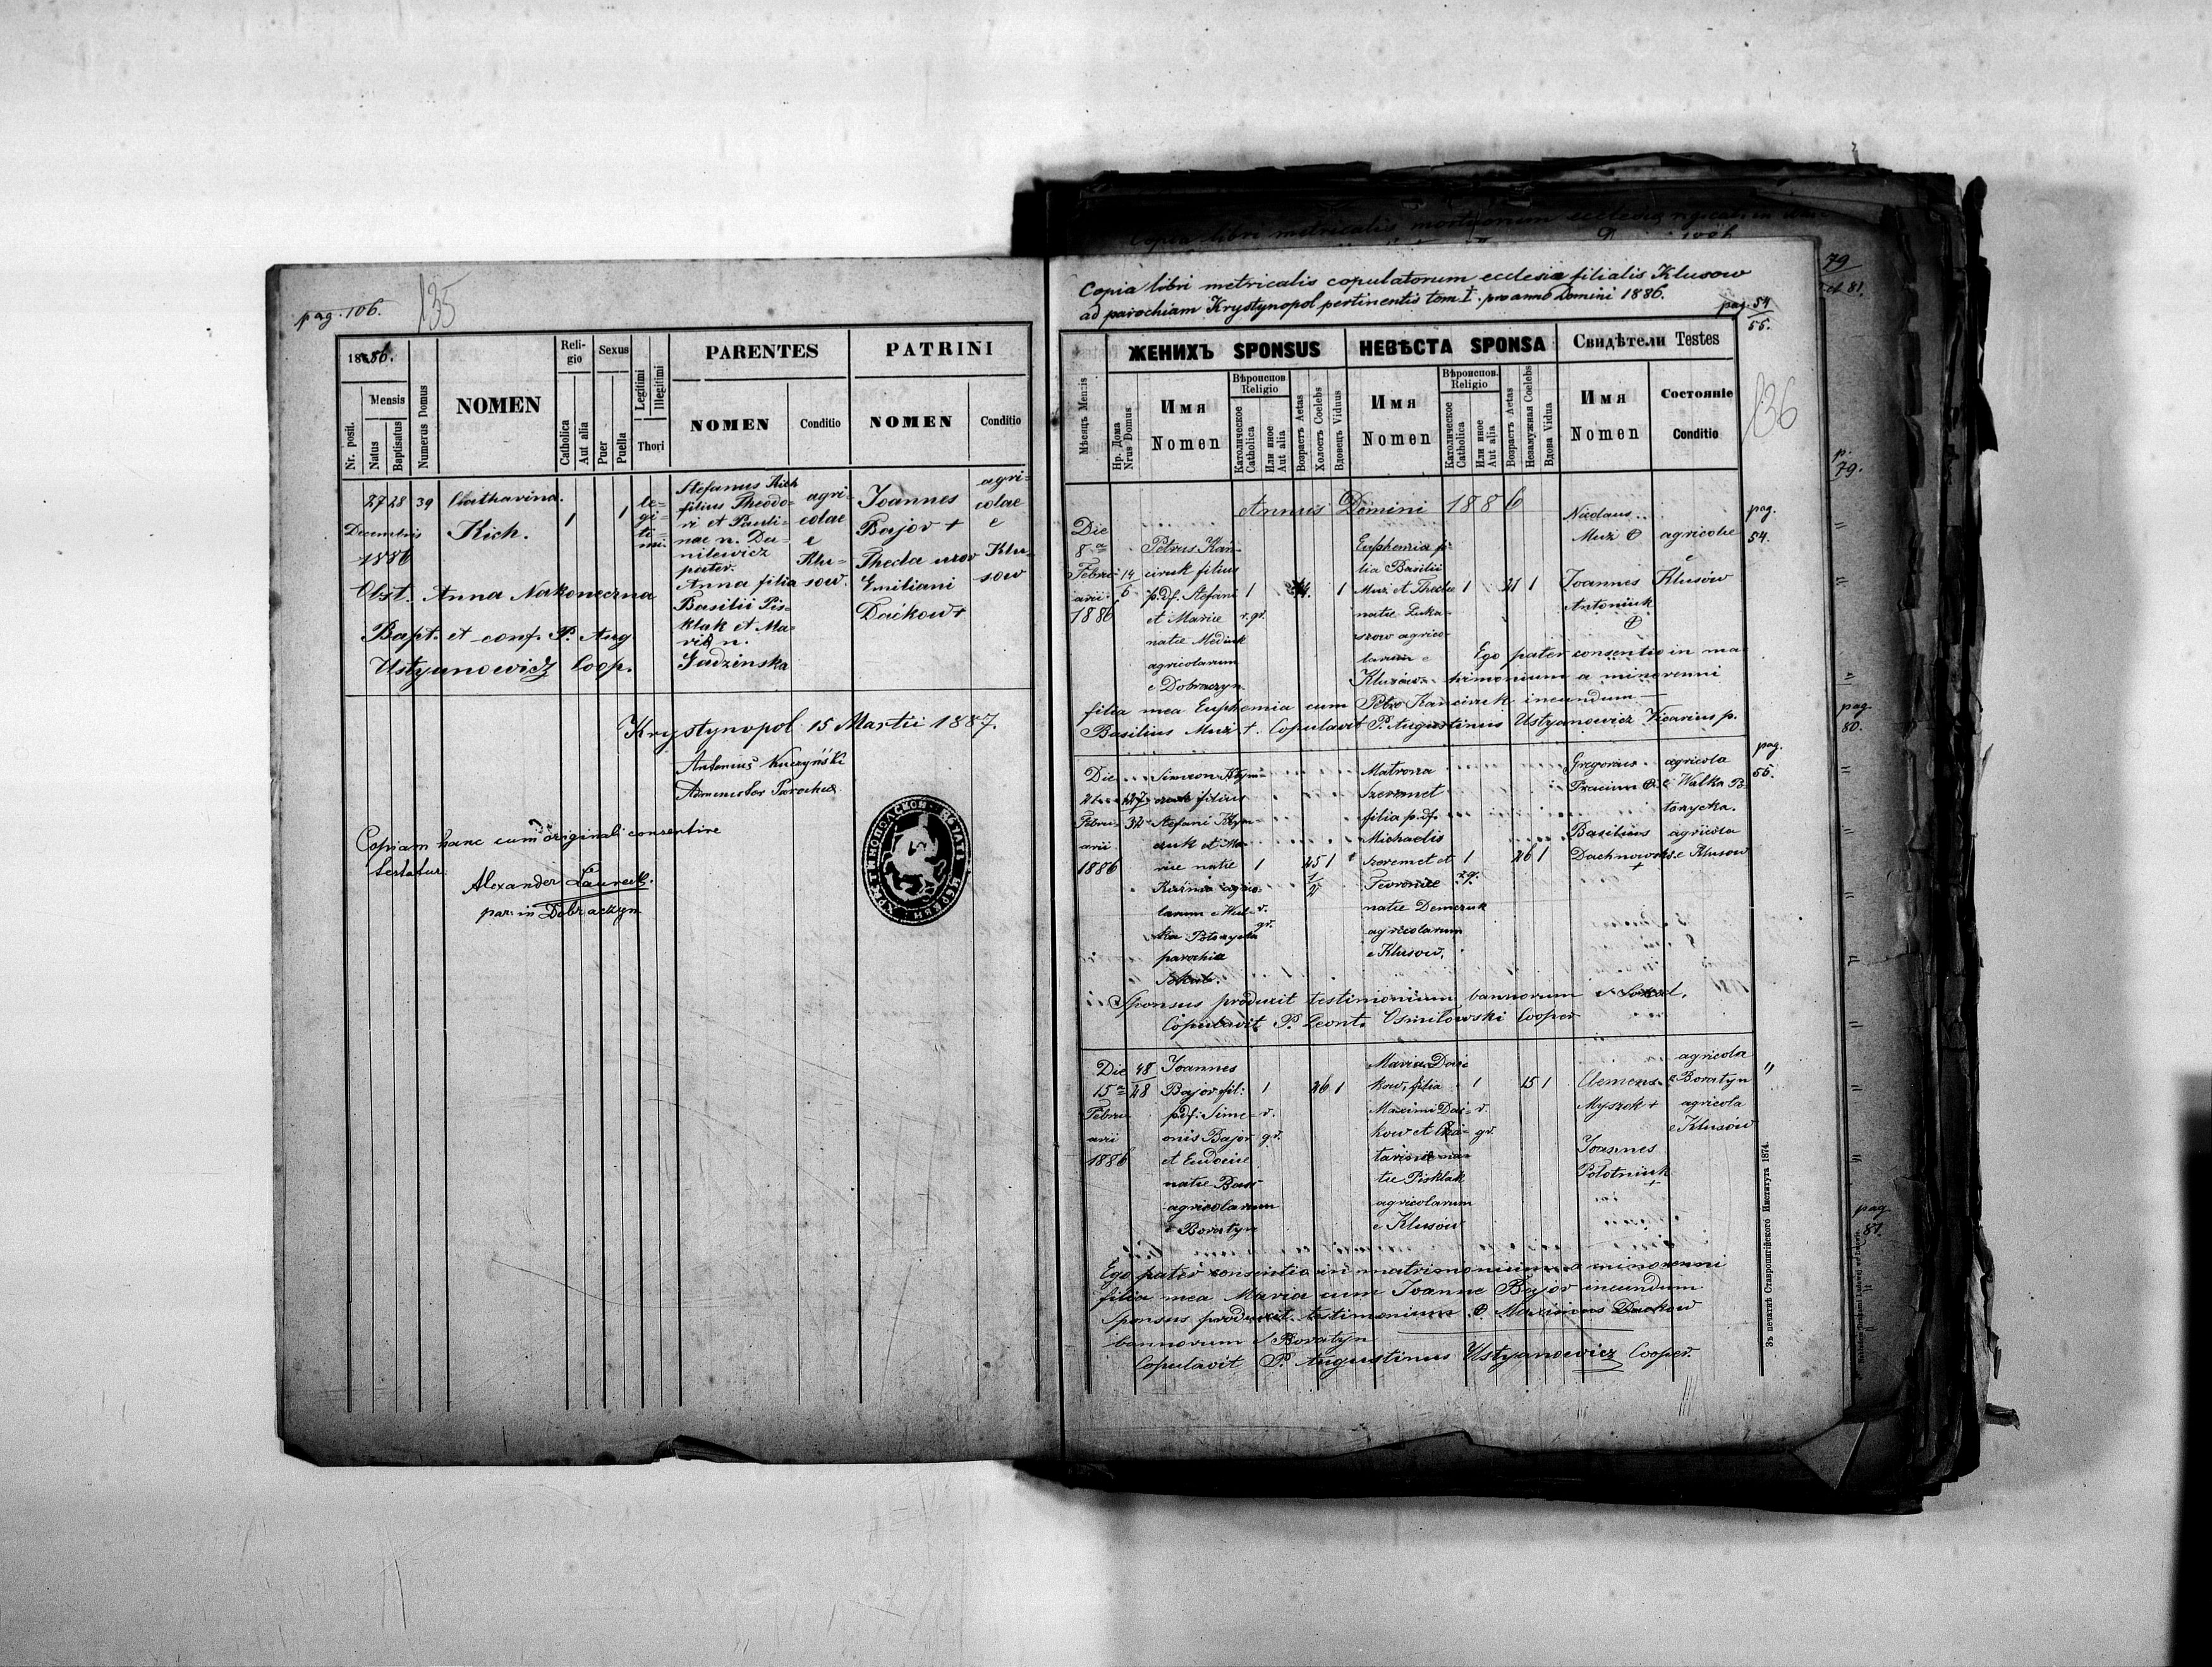 pag. 106.
135
1886.
Nr. posit.
Mensis
Natus
Baptisatus
Numerus Domus
NOMEN
Reli-
gio
Catholica
Aut alia
Sexus
Puer
Puella
Legitimi
Illegitimi
Thori
PARENTES
NOMEN
Conditio
PATRINI
NOMEN
Conditio
27 28 39 Catharina
Kich.
Decembris
1886
1 1
le=
gi=
ti=
mi.
Stefanus Kich
filius Theodo=
ri et Pauli=
nae n. Da=
nilewicz
pater.
Anna filia
Basilii Pis=
klak et Ma=
riæ n.
Gudzinska
agri=
colae
e
Klu=
sow.
Joannes
Bajor +
Thecla uxor
Emiliani
Daćkow +
agri=
colae
e
Klu=
sow
Obst. Anna Nakoneczna
Bapt. et conf. P. Aug
Ustyanowicz Coop.
Krystynopol 15 Martii 1887.
Antonius Kuczyński
Administer Parochiæ
Copiam hanc cum originali consentire
testatur.
Alexander Laurecki.
par. in Dobraczyn
Copia libri metricalis copulatorum ecclesiæ filialis Klusow
ad parochiam Krystynopol pertinentis tom. I. pro anno Domini 1886.
pag. 54
55.
136
Мѣсяцъ Mensis
ЖЕНИХЪ SPONSUS
НЕВѢСТА SPONSA
Свидѣтели Testes
Нр. Дома
Nrus Domus
Имя
Nomen
Вѣроиспов.
Religio
Католическое
Catholica
Или иное
Aut alia
Возрастъ Aetas
Холостъ Coelebs
Вдовецъ Viduus
Имя
Nomen
Вѣроиспов.
Religio
Католическое
Catholica
Или иное
Aut alia
Возрастъ Aetas
Незамужная Coelebs
Вдова Vidua
Имя
Nomen
Состояніе
Conditio
Annus Domini 1886
Die
8a
Febru-
arii
1886
14
6
Petrus Kan-
ciruk filius
p.df. Stefani
et Mariæ
natæ Mediuk
agricolarum
e Dobraczyn
1
r.gr.
1
Euphemia fi-
lia Basilii
Muzi et Theclæ
natæ Luka-
szow agrico-
larum e
Klusów
1 21 1
Nicolaus
Muzi
Joannes
Antoniuk
agricolæ
e
Klusów
pag.
54.
Ego pater consentio in ma-
trimonium a minorenni
filia mea Euphemia cum Petro Kanciruk ineundum
Basilius Muzi +. Copulavit P. Augustinus Ustyanowicz Vicarius p.
Die
Febru-
arii
1886
127
32
Simeon Klym-
czuk filius
Stefani Klym-
czuk et Ma-
riæ natæ
Kuźmin agrico-
larum e Wul-
ka Potorycka
parochiæ
Sokal.
1
r.
gr.
25 1
1
2
Matrona
Szeremet
filia p.df.
Michaelis
Szeremet et
Fevroniæ
natæ Demczuk
agricolarum
e Klusow.
1
r.g.
26 1
Gregorius
Basilius
Dachnowski
+
agricola
e Wulka Po-
torycka.
agricola
e Klusow
pag.
55.
Sponsus produxit testimonium bannorum e Sokal.
Copulavit P. Leont. Osmilowski Cooper
Die
15a
Febru-
arii
1886
48
28
Joannes
Bajor fil:
p.df: Sime-
onis Bajor
et Eudociæ
natæ Bass
agricolarum
e Boratyn
1
r.
gr.
26 1
Maria Dać-
kow, filia
Maximi Dać-
kow et Cha-
taringæ na-
tæ Pisklak
agricolarum
e Klusów
1
r.
gr.
15 1
Clemens
Myszok +
Joannes
Polotniuk
+
agricola
e Boratyn
agricola
e Klusów
"
Ego pater consentio in matrimonium a minorenni
filia mea Maria cum Joanne Bajor ineundum
Sponsus produxit testimonium Maximus Dackow
bannorum e Boratyn
Copulavit P. Augustinus Ustyanowicz Cooper.
Зъ печатнѣ Ставропигійского Института 1874.
79
et 81.
p.
79.
pag.
80.
pag
81.